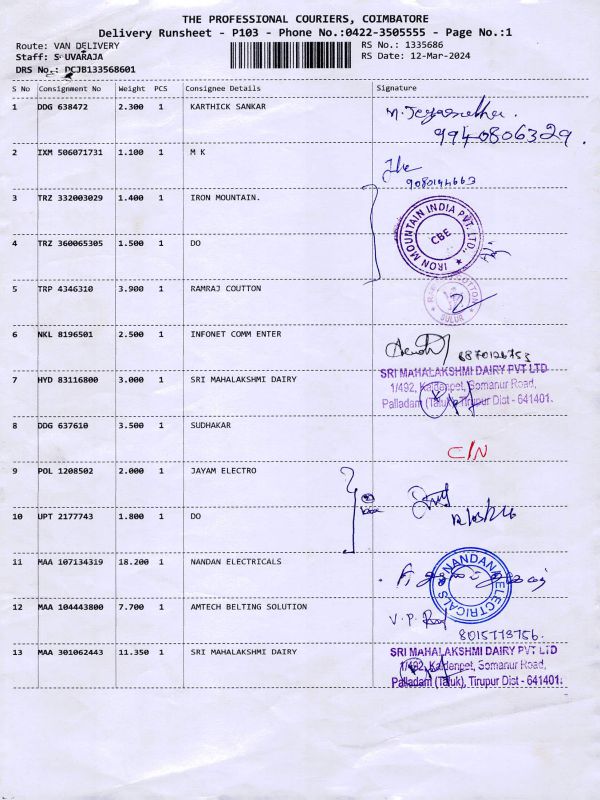 THE PROFESSIONAL COURIERS, COIMBATORE
Delivery Runsheet - P103 - Phone No.:0422-3505555 - Page No.:1
Route: VAN DELIVERY
RS No.: 1335686
Staff: S UVARAJA
RS Date: 12-Mar-2024
DRS No.: DCJB133568601
S No Consignment No Weight PCS Consignee Details Signature
1 DDG 638472 2.300 1 KARTHICK SANKAR
9940806329.
2 IXM 506071731 1.100 1 M K
9080144663
3 TRZ 332003029 1.400 1 IRON MOUNTAIN.
IRON MOUNTAIN INDIA PVT. LTD.,
CBE
4 TRZ 360065305 1.500 1 DO
5 TRP 4346310 3.900 1 RAMRAJ COUTTON
SULUR
6 NKL 8196501 2.500 1 INFONET COMM ENTER
8870126753
7 HYD 83116800 3.000 1 SRI MAHALAKSHMI DAIRY
SRI MAHALAKSHMI DAIRY PVT LTD
1/492, Kaldenpet, Somanur Road,
Palladam (Taluk), Tirupur Dist - 641401.
8 DDG 637610 3.500 1 SUDHAKAR
C/N
9 POL 1208502 2.000 1 JAYAM ELECTRO
10 UPT 2177743 1.800 1 DO
11 MAA 107134319 18.200 1 NANDAN ELECTRICALS
NANDAN ELECTRICALS
12 MAA 104443800 7.700 1 AMTECH BELTING SOLUTION
V.P.
8015773756.
13 MAA 301062443 11.350 1 SRI MAHALAKSHMI DAIRY
SRI MAHALAKSHMI DAIRY PVT LTD
1/492, Kaldenpet, Somanur Road,
Palladam (Taluk), Tirupur Dist - 641401.